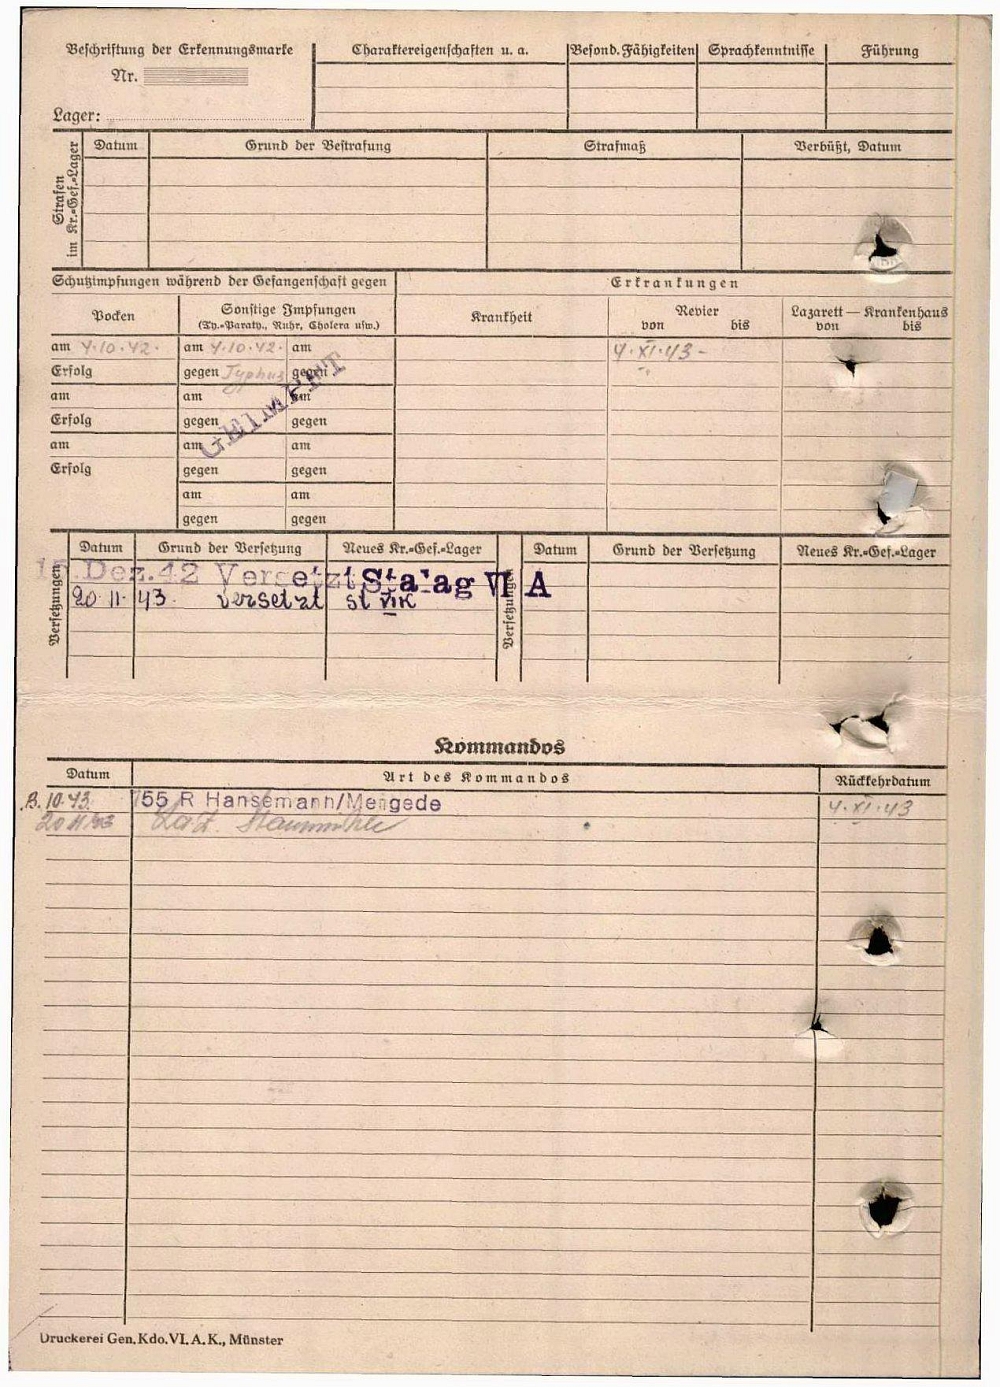 Beschriftung der Erkennungsmarke
Nr.
Lager:
Charaktereigenschaften u. a.
Besond. Fähigkeiten
Sprachkenntnisse
Führung
Strafen im Kr.=Gef.=Lager
Datum
Grund der Bestrafung
Strafmaß
Verbüßt, Datum
Schutzimpfungen während der Gefangenschaft gegen
Erkrankungen
Pocken
Sonstige Impfungen
(Ty.=Paraty., Ruhr, Cholera usw.)
Krankheit
Revier
von bis
Lazarett — Krankenhaus
von bis
am 4.10.42. am 4.10.42. am 4.XI.43-
Erfolg gegen Typhus gegen
am am am
GEIMPFT
Erfolg gegen gegen
am am am
Erfolg gegen gegen
am am
gegen gegen
Versetzungen
Datum Grund der Versetzung Neues Kr.=Gef.=Lager
Versetzungen
Datum Grund der Versetzung Neues Kr.=Gef.=Lager
Dez. 42 Versetzt Stalag VI A
20.11.43. versetzt st VIK
Kommandos
Datum Art des Kommandos Rückkehrdatum
10.43. 755 R Hansemann/Mengede 4.XI.43
20 11 43 Laz. Staumühle
Druckerei Gen. Kdo. VI. A. K., Münster